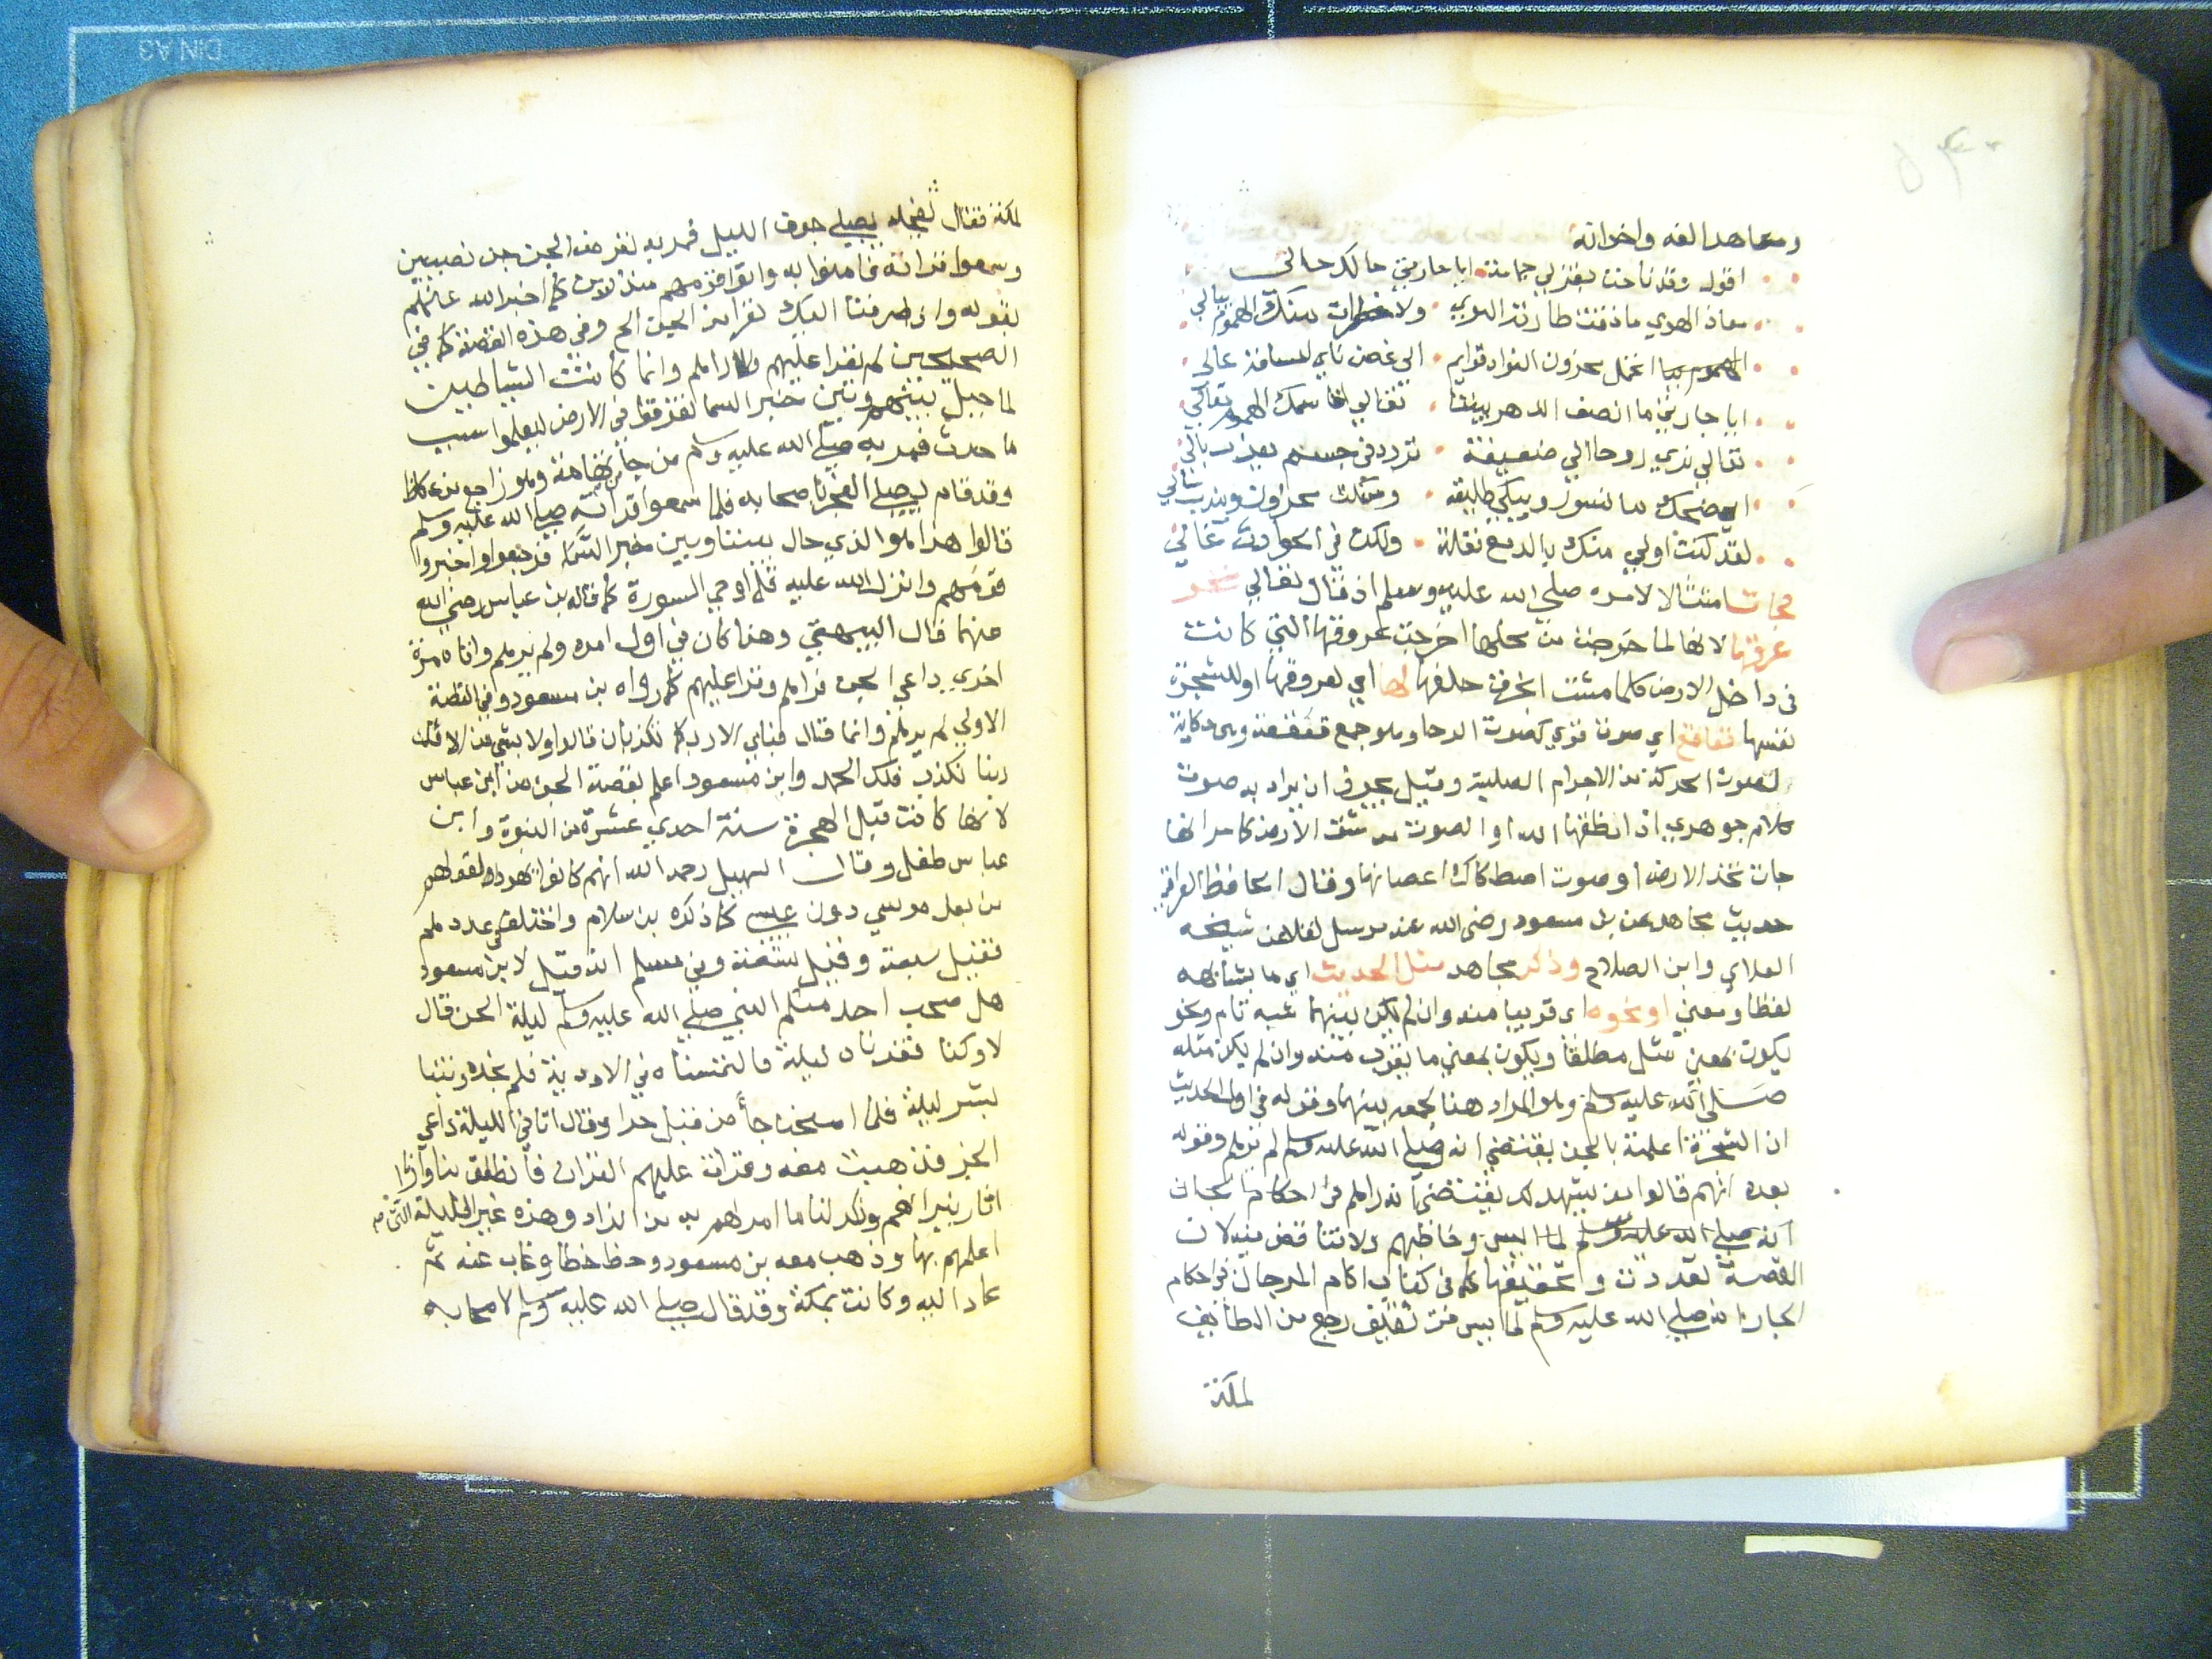 ومعاهد الفه واخوانه
اقول وقد ناحت بقربي حمامة ايا جارتي ما لك حالي
معاذ الهوي ما ذقت طارقة النوي ولا خطرت منك الهموم ببالي
اتحمل محزون الفواد قوايم الي غصن ناي المسافة عالي
ايا جارتي ما انصف الدهر بيننا تعالي اقاسمك الهموم تعالي
تعالي تري روحا لدي ضعيفة تردد في جسم يعذب بالي
ايضحك ماسور وتبكي طليقة ويسكت محزون ويندب سالي
لقد كنت اولي منك بالدمع مقلة ولكن في الحوادث غالي
فجات امتثالا لامره صلى الله عليه وسلم اذ قال تعالي تجر
عروقها لانها لما خرجت من محلها اخرجت عروقها التي كانت
في داخل الارض كلما مشت انجرت خلفها لها اي لعروقها او للشجرة
نفسها قعاقع اي صوت قوي كصوت الرحا وهو جمع قعقعة وهي حكاية
لصوت الحركة من الاجرام الصلبة وقيل يجوز ان يراد به صوت
كلام جوهري اذ انطقها الله او الصوت من شق الارض كما مر انها
جات تخد الارض او صوت اصطكاك اغصانها وقال الحافظ العراقي
حديث مجاهد عن بن مسعود رضى الله عنه مرسل نقلا عن شيخه
العلاي وابن الصلاح وذكر مجاهد مثل الحديث اي ما يشابهه
لفظا ومعني او نحوه اي قريبا منه وان لم يكن بينهما شبه تام ونحو
يكون بمعني مثل مطلقا ويكون بمعني ما يقرب منه وان لم يكن مثله
صلى الله عليه وسلم وهو المراد هنا لجمعه بينهما وقوله في اول الحديث
ان الشجرة اعلمته بالجن يقتضي انه صلى الله عليه وسلم لم يرهم وقوله
بعده انهم قالوا من يشهد لك يقتضي انه راهم في احكام الجان
انه صلى الله عليه وسلم لما وخاطبهم ولا تناقض فيه لان
القصة تعددت وتحقيقها كما في كتاب اكام المرجان في احكام
الجان انه صلى الله عليه وسلم لما ايس من ثقيف رجع من الطايف
لمكة
لمكة فقال بنخلة يصلي جوف الليل فمر به نفر من الجن جن نصيبين
وسمعوا قراته فامنوا به واتوا قومهم منذرين كما اخبر الله عنهم
بقوله واذ صرفنا اليك نفرا من الجن الخ وفي هذه القصة كما في
الصحيحين لم يقرا عليهم ولا راهم وانما كانت الشياطين
لما حيل بينهم وبين خبر السما تفرقوا في الارض ليعلموا سبب
ما حدث فمر به صلى الله عليه وسلم من جا من تهامة وهو راجع من عكاظ
وقد قام يصلي الفجر باصحابه فلما سمعوا قراته صلى الله عليه وسلم
قالوا هذا هو الذي حال بيننا وبين خبر السما فرجعوا واخبروا
قومهم وانزل الله عليه قل اوحي السورة كما قاله بن عباس رضي الله
عنهما قال البيهقي وهذا كان في اول امره ولم يرهم واتاه مرة
اخري داعي الجن فراهم وقرا عليهم كما رواه بن مسعود وفي القصة
الاولي لم يرهم وانما قال فباي الا ربكما تكذبان قالوا ولا بشي من الائك
ربنا نكذب فلك الحمد وابن مسعود اعلم بقصة الجن من ابن عباس
لانها كانت قبل الهجرة سنة احدي عشرة من النبوة وابن
عباس طفل وقال السهيلي رحمه الله انهم كانوا يهودا لقولهم
من بعد موسي دون عيسي كما ذكره بن سلام واختلف في عددهم
فقيل سبعة وقيل تسعة وفي مسلم انه قيل لابن مسعود
هل صحب احد منكم النبي صلى الله عليه وسلم ليلة الجن قال
لا وكنا فقدناه ليلة فالتمسناه في الاودية فلم نجده وبتنا
بشر ليلة فلما اصبحنا جا من قبل حرا وقال اتاني الليلة داعي
الجن فذهبت معه وقرات عليهم القران فانطلق بنا وارانا
اثار نيرانهم وذكر لنا ما امرهم به من الزاد وهذه غير الليلة التي
اعلمهم بها وذهب معه بن مسعود وخط خطا وغاب عنه ثم
عاد اليه وكانت بمكة وقد قال صلى الله عليه وسلم لاصحابه